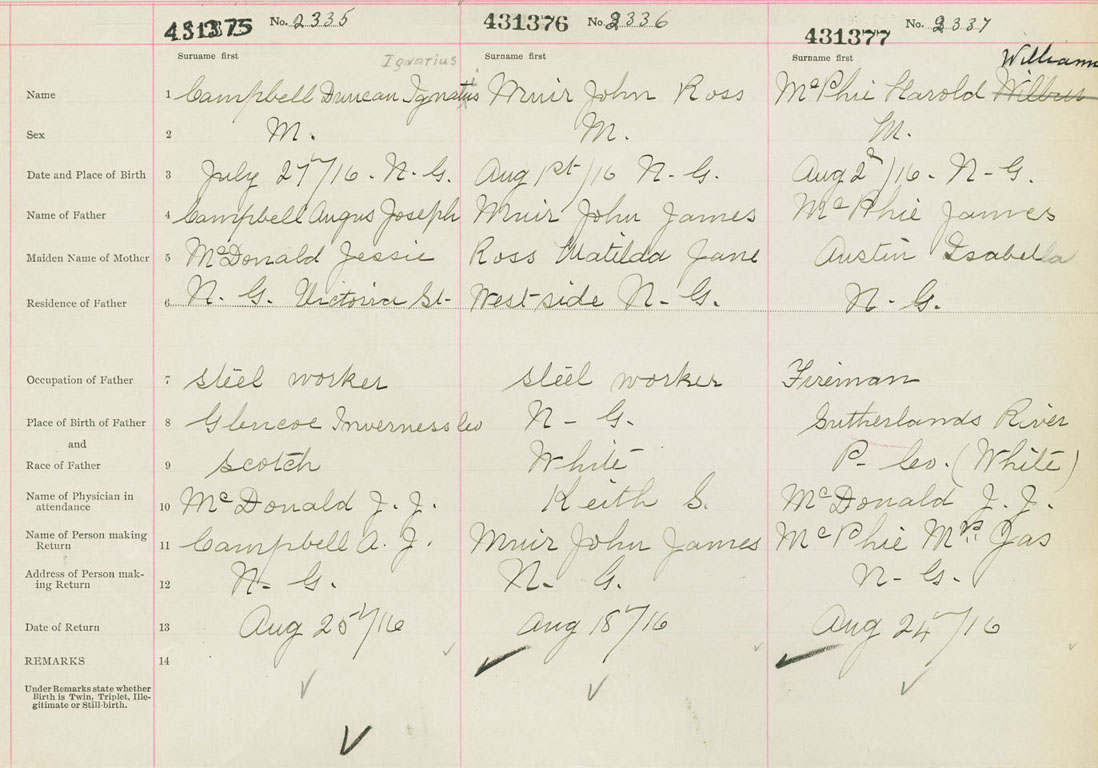 431375 No. 2335 431376 No. 2336 431377 No. 2337
Surname first Surname first Surname first
Ignatius Williams
Name 1 Campbell Duncan Ignatius Muir John Ross McPhie Harold Wilbur
Sex 2 M. M. M.
Date and Place of Birth 3 July 27/16 - N. G. Aug 1st/16 N - G. Aug 2d/16 - N - G.
Name of Father 4 Campbell Angus Joseph Muir John James McPhie James
Maiden Name of Mother 5 McDonald Jessie Ross Matilda Jane Austin Isabella
Residence of Father 6 N. G. Victoria St - West-side N - G. N - G.
Occupation of Father 7 steel worker steel worker Fireman
Place of Birth of Father 8 Glencoe Inverness Co N - G. Sutherlands River
and
Race of Father 9 Scotch White P - Co. (White)
Name of Physician in
attendance 10 McDonald J. J. Keith S. McDonald J. J.
Name of Person making
Return 11 Campbell A. J. Muir John James McPhie Mrs Jas
Address of Person mak-
ing Return 12 N - G. N - G. N - G.
Date of Return 13 Aug 25/16 Aug 18/16 Aug 24/16
REMARKS 14
Under Remarks state whether
Birth is Twin, Triplet, Ille-
gitimate or Still-birth.